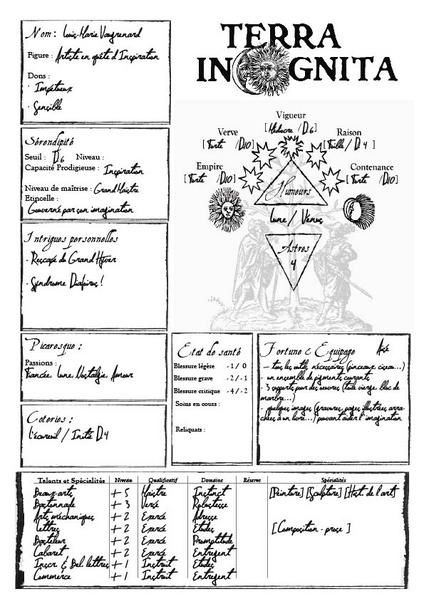 Nom : Louis-Marie Vaugrenard
TERRA
INCOGNITA
Figure : Artiste en quête d'Inspiration
Dons :
- Impétueux
- Sensible
Vigueur
[Médiocre / D6]
Verve
[Forte /D10]
Raison
[Faible / D4]
Empire
[Forte /D10]
Contenance
[Forte /D10]
Humeurs
Lune / Vénus
Astres
4
Sérendipité
Seuil : D6 Niveau :
Capacité Prodigieuse : Inspiration
Niveau de maîtrise : Grand Maître
Etincelle :
Gouverné par son imagination
Intrigues personnelles
- Rescapé du Grand Hiver
- Syndrome Diaforus !
Picaresque :
Passions :
Fiancée, Lune, Nostalgie, Amour
Coteries :
L'écureuil / Initié D4
Etat de santé
Blessure légère -1 / 0
Blessure grave -2 / -1
Blessure critique -4 / -2
Soins en cours :
Reliquats :
Fortune & Equipage Aisé
- tous les outils nécessaires (pinceaux, ciseau...)
- un ensemble de pigments courants
- 3 supports pour des oeuvres (toile vierge, bloc de
marbre...)
- quelques images (gravures, pages illustrées arra-
chées à un livre...) pouvant aider l'imagination
Talents et Spécialités Niveau Qualificatif Domaine Réserve Spécialités
Beaux-arts + 5 Maître Instinct [Peinture] [Sculpture] [Hist. de l'art]
+ 3 Versé Robustesse
Arts mécaniques + 2 Exercé Adresse
Lettres + 2 Exercé Etudes [Composition - prose]
+ 2 Exercé Promptitude
Cabaret + 2 Exercé Entregent
& Bel. lettres + 1 Instruit Etudes
Commerce + 1 Instruit Entregent